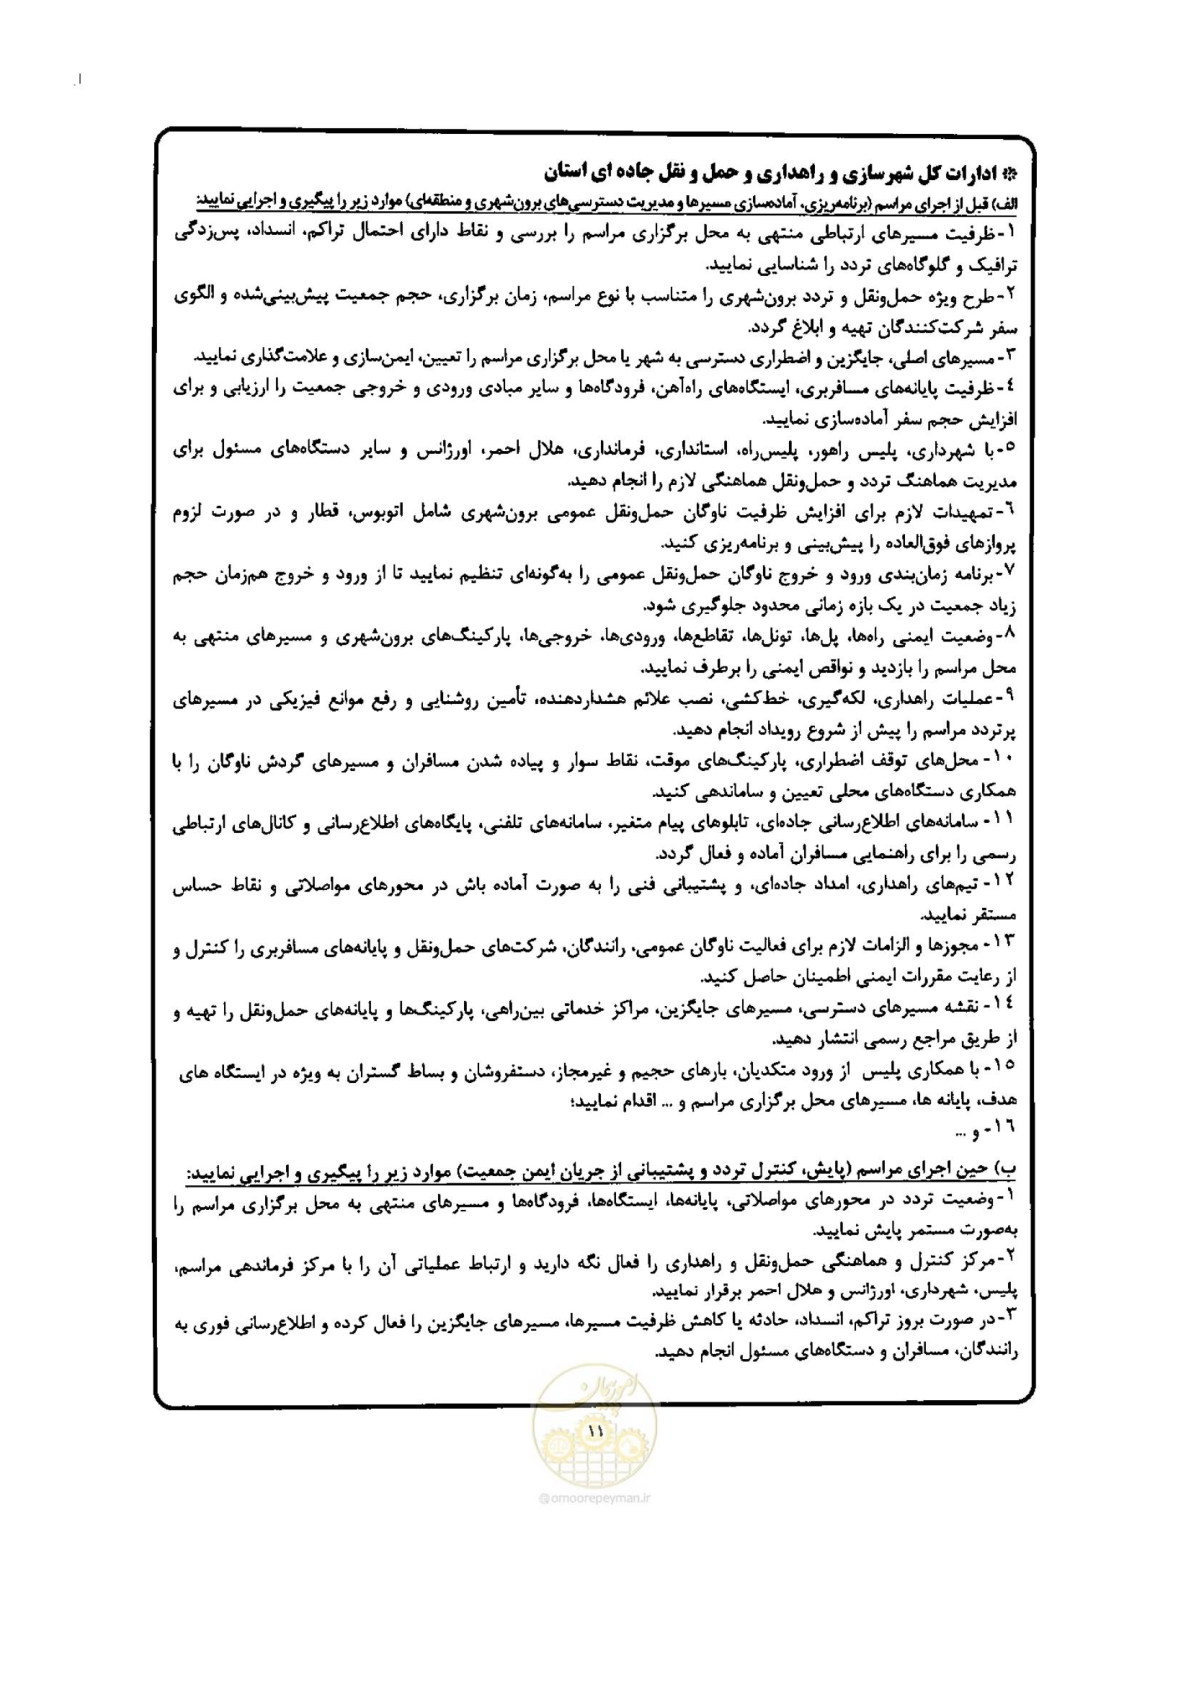 ❊ ادارات کل شهرسازی و راهداری و حمل و نقل جاده ای استان
الف) قبل از اجرای مراسم (برنامه‌ریزی، آماده‌سازی مسیرها و مدیریت دسترسی‌های برون‌شهری و منطقه‌ای) موارد زیر را پیگیری و اجرایی نمایید:
۱-ظرفیت مسیرهای ارتباطی منتهی به محل برگزاری مراسم را بررسی و نقاط دارای احتمال تراکم، انسداد، پس‌زدگی
ترافیک و گلوگاه‌های تردد را شناسایی نمایید.
۲-طرح ویژه حمل‌ونقل و تردد برون‌شهری را متناسب با نوع مراسم، زمان برگزاری، حجم جمعیت پیش‌بینی‌شده و الگوی
سفر شرکت‌کنندگان تهیه و ابلاغ گردد.
۳-مسیرهای اصلی، جایگزین و اضطراری دسترسی به شهر یا محل برگزاری مراسم را تعیین، ایمن‌سازی و علامت‌گذاری نمایید.
۴-ظرفیت پایانه‌های مسافربری، ایستگاه‌های راه‌آهن، فرودگاه‌ها و سایر مبادی ورودی و خروجی جمعیت را ارزیابی و برای
افزایش حجم سفر آماده‌سازی نمایید.
۵-با شهرداری، پلیس راهور، پلیس‌راه، استانداری، فرمانداری، هلال احمر، اورژانس و سایر دستگاه‌های مسئول برای
مدیریت هماهنگ تردد و حمل‌ونقل هماهنگی لازم را انجام دهید.
۶-تمهیدات لازم برای افزایش ظرفیت ناوگان حمل‌ونقل عمومی برون‌شهری شامل اتوبوس، قطار و در صورت لزوم
پروازهای فوق‌العاده را پیش‌بینی و برنامه‌ریزی کنید.
۷-برنامه زمان‌بندی ورود و خروج ناوگان حمل‌ونقل عمومی را به‌گونه‌ای تنظیم نمایید تا از ورود و خروج هم‌زمان حجم
زیاد جمعیت در یک بازه زمانی محدود جلوگیری شود.
۸-وضعیت ایمنی راه‌ها، پل‌ها، تونل‌ها، تقاطع‌ها، ورودی‌ها، خروجی‌ها، پارکینگ‌های برون‌شهری و مسیرهای منتهی به
محل مراسم را بازدید و نواقص ایمنی را برطرف نمایید.
۹-عملیات راهداری، لکه‌گیری، خط‌کشی، نصب علائم هشداردهنده، تأمین روشنایی و رفع موانع فیزیکی در مسیرهای
پرتردد مراسم را پیش از شروع رویداد انجام دهید.
۱۰- محل‌های توقف اضطراری، پارکینگ‌های موقت، نقاط سوار و پیاده شدن مسافران و مسیرهای گردش ناوگان را با
همکاری دستگاه‌های محلی تعیین و ساماندهی کنید.
۱۱- سامانه‌های اطلاع‌رسانی جاده‌ای، تابلوهای پیام متغیر، سامانه‌های تلفنی، پایگاه‌های اطلاع‌رسانی و کانال‌های ارتباطی
رسمی را برای راهنمایی مسافران آماده و فعال گردد.
۱۲- تیم‌های راهداری، امداد جاده‌ای، و پشتیبانی فنی را به صورت آماده باش در محورهای مواصلاتی و نقاط حساس
مستقر نمایید.
۱۳- مجوزها و الزامات لازم برای فعالیت ناوگان عمومی، رانندگان، شرکت‌های حمل‌ونقل و پایانه‌های مسافربری را کنترل و
از رعایت مقررات ایمنی اطمینان حاصل کنید.
۱۴- نقشه مسیرهای دسترسی، مسیرهای جایگزین، مراکز خدماتی بین‌راهی، پارکینگ‌ها و پایانه‌های حمل‌ونقل را تهیه و
از طریق مراجع رسمی انتشار دهید.
۱۵- با همکاری پلیس از ورود متکدیان، بارهای حجیم و غیرمجاز، دستفروشان و بساط گستران به ویژه در ایستگاه های
هدف، پایانه ها، مسیرهای محل برگزاری مراسم و ... اقدام نمایید؛
۱۶- و ...
ب) حین اجرای مراسم (پایش، کنترل تردد و پشتیبانی از جریان ایمن جمعیت) موارد زیر را پیگیری و اجرایی نمایید:
۱-وضعیت تردد در محورهای مواصلاتی، پایانه‌ها، ایستگاه‌ها، فرودگاه‌ها و مسیرهای منتهی به محل برگزاری مراسم را
به‌صورت مستمر پایش نمایید.
۲-مرکز کنترل و هماهنگی حمل‌ونقل و راهداری را فعال نگه دارید و ارتباط عملیاتی آن را با مرکز فرماندهی مراسم،
پلیس، شهرداری، اورژانس و هلال احمر برقرار نمایید.
۳-در صورت بروز تراکم، انسداد، حادثه یا کاهش ظرفیت مسیرها، مسیرهای جایگزین را فعال کرده و اطلاع‌رسانی فوری به
رانندگان، مسافران و دستگاه‌های مسئول انجام دهید.
امور پیمان
۱۱
@omoorepeyman.ir